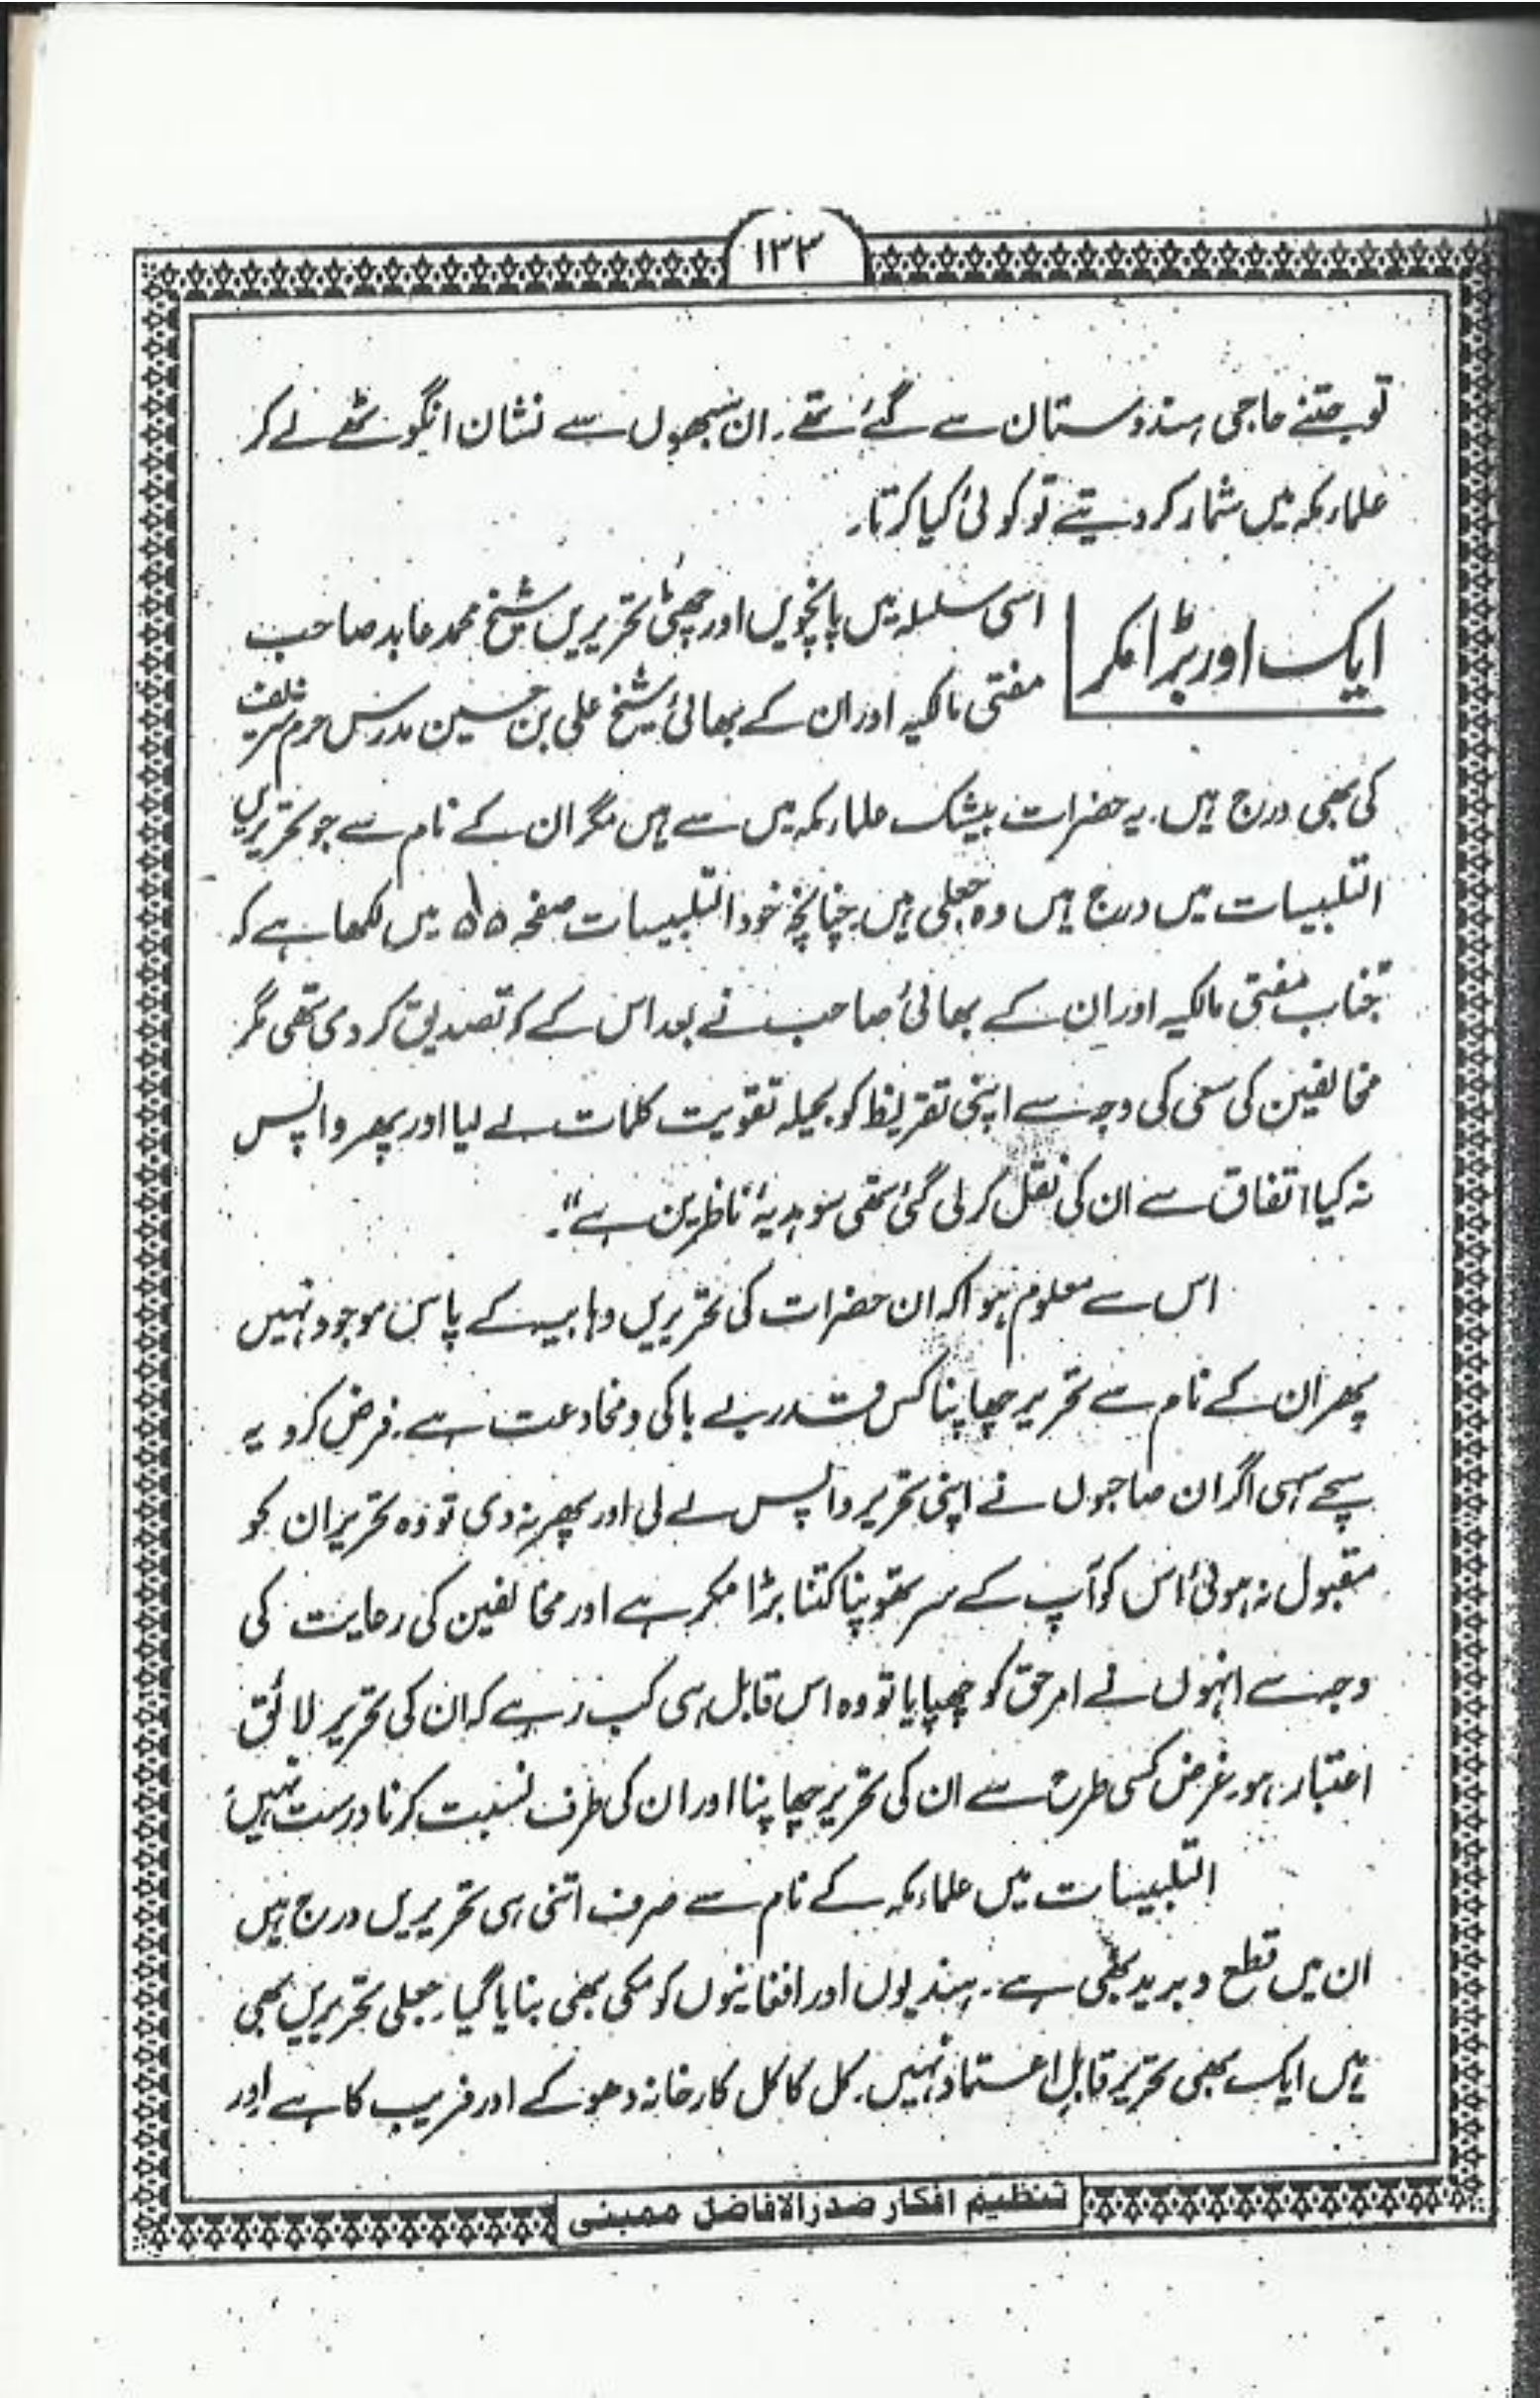 ۱۳۳
تو جتنے حاجی ہندوستان سے گئے تھے۔ ان سبھوں سے نشان انگوٹھے لے کر
علماء مکہ میں شمار کر دیتے تو کوئی کیا کرتا۔
ایک اور بڑا مکر
اسی سلسلہ میں پانچویں اور چھٹی تحریریں شیخ محمد عابد صاحب
مفتی مالکیہ اور ان کے بھائی شیخ علی بن حسین مدرس حرم شریف
کی بھی درج ہیں۔ یہ حضرات بیشک علماء مکہ میں سے ہیں مگر ان کے نام سے جو تحریریں
التلبیسات میں درج ہیں وہ جعلی ہیں۔ چنانچہ خود التلبیسات صفحہ میں لکھا ہے کہ
جناب مفتی مالکیہ اور ان کے بھائی صاحب نے بعد اس کے کہ تصدیق کر دی تھی مگر
مخالفین کی سعی کی وجہ سے اپنی تقریظ کو بحیلہ تقویت کلمات لے لیا اور پھر واپس
نہ کیا اتفاق سے ان کی نقل کر لی گئی تھی سو ہدیۂ ناظرین ہے"۔
اس سے معلوم ہوا کہ ان حضرات کی تحریریں وہابیہ کے پاس موجود نہیں
پھر ان کے نام سے تحریر چھاپنا کس قدر بے باکی و مخادعت ہے۔ فرض کرو یہ
سچے سہی اگر ان صاحبوں نے اپنی تحریر واپس لے لی اور پھر نہ دی تو وہ تحریر ان کو
مقبول نہ ہوئی اس کو آپ کے سر تھوپنا کتنا بڑا مکر ہے اور مخالفین کی رعایت کی
وجہ سے انہوں نے امر حق کو چھپایا تو وہ اس قابل ہی کب رہے کہ ان کی تحریر لائق
اعتبار ہو۔ غرض کسی طرح سے ان کی تحریر چھاپنا اور ان کی طرف نسبت کرنا درست نہیں
التلبیسات میں علماء مکہ کے نام سے صرف اتنی ہی تحریریں درج ہیں
ان میں قطع و برید بھی ہے۔ ہندیوں اور افغانیوں کو مکی بھی بنایا گیا۔ جعلی تحریریں بھی
ہیں ایک بھی تحریر قابل اعتماد نہیں۔ کل کا کل کارخانہ دھوکے اور فریب کا ہے اور
تنظیم افکار صدر الافاضل ممبئی